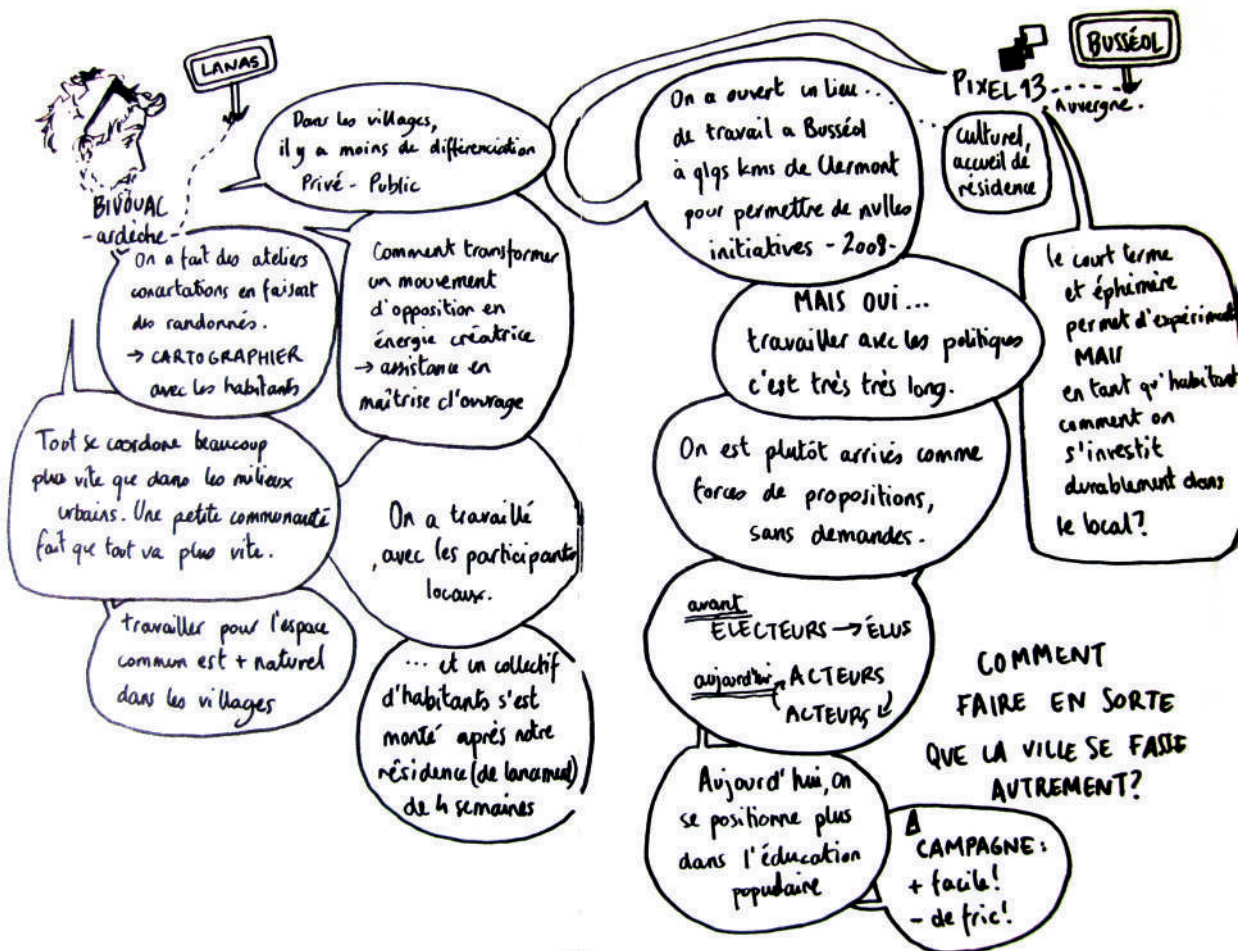 LANAS
BIVOUAC
-ardèche-
Dans les villages,
il y a moins de différenciation
Privé - Public
On a fait des ateliers
concertations en faisant
des randonnés.
→ CARTOGRAPHIER
avec les habitants
Comment transformer
un mouvement
d'opposition en
énergie créatrice
→ assistance en
maîtrise d'ouvrage
Tout se coordone beaucoup
plus vite que dans les milieux
urbains. Une petite communauté
fait que tout va plus vite.
On a travaillé
avec les participants
locaux.
travailler pour l'espace
commun est + naturel
dans les villages
... et un collectif
d'habitants s'est
monté après notre
résidence (de lancement)
de 4 semaines
BUSSÉOL
PIXEL 13
Auvergne.
On a ouvert un lieu...
de travail a Busséol
à qlqs kms de Clermont
pour permettre de nvlles
initiatives - 2008-
culturel,
accueil de
résidence
MAIS OUI...
travailler avec les politiques
c'est très très long.
le court terme
et éphémère
permet d'expérimenter
MAIS
en tant qu'habitant
comment on
s'investit
durablement dans
le local?
On est plutôt arrivés comme
forces de propositions,
sans demandes.
avant
ELECTEURS → ÉLUS
aujourd'hui ACTEURS
ACTEURS
Aujourd'hui, on
se positionne plus
dans l'éducation
populaire
COMMENT
FAIRE EN SORTE
QUE LA VILLE SE FASSE
AUTREMENT?
CAMPAGNE:
+ facile!
- de fric!